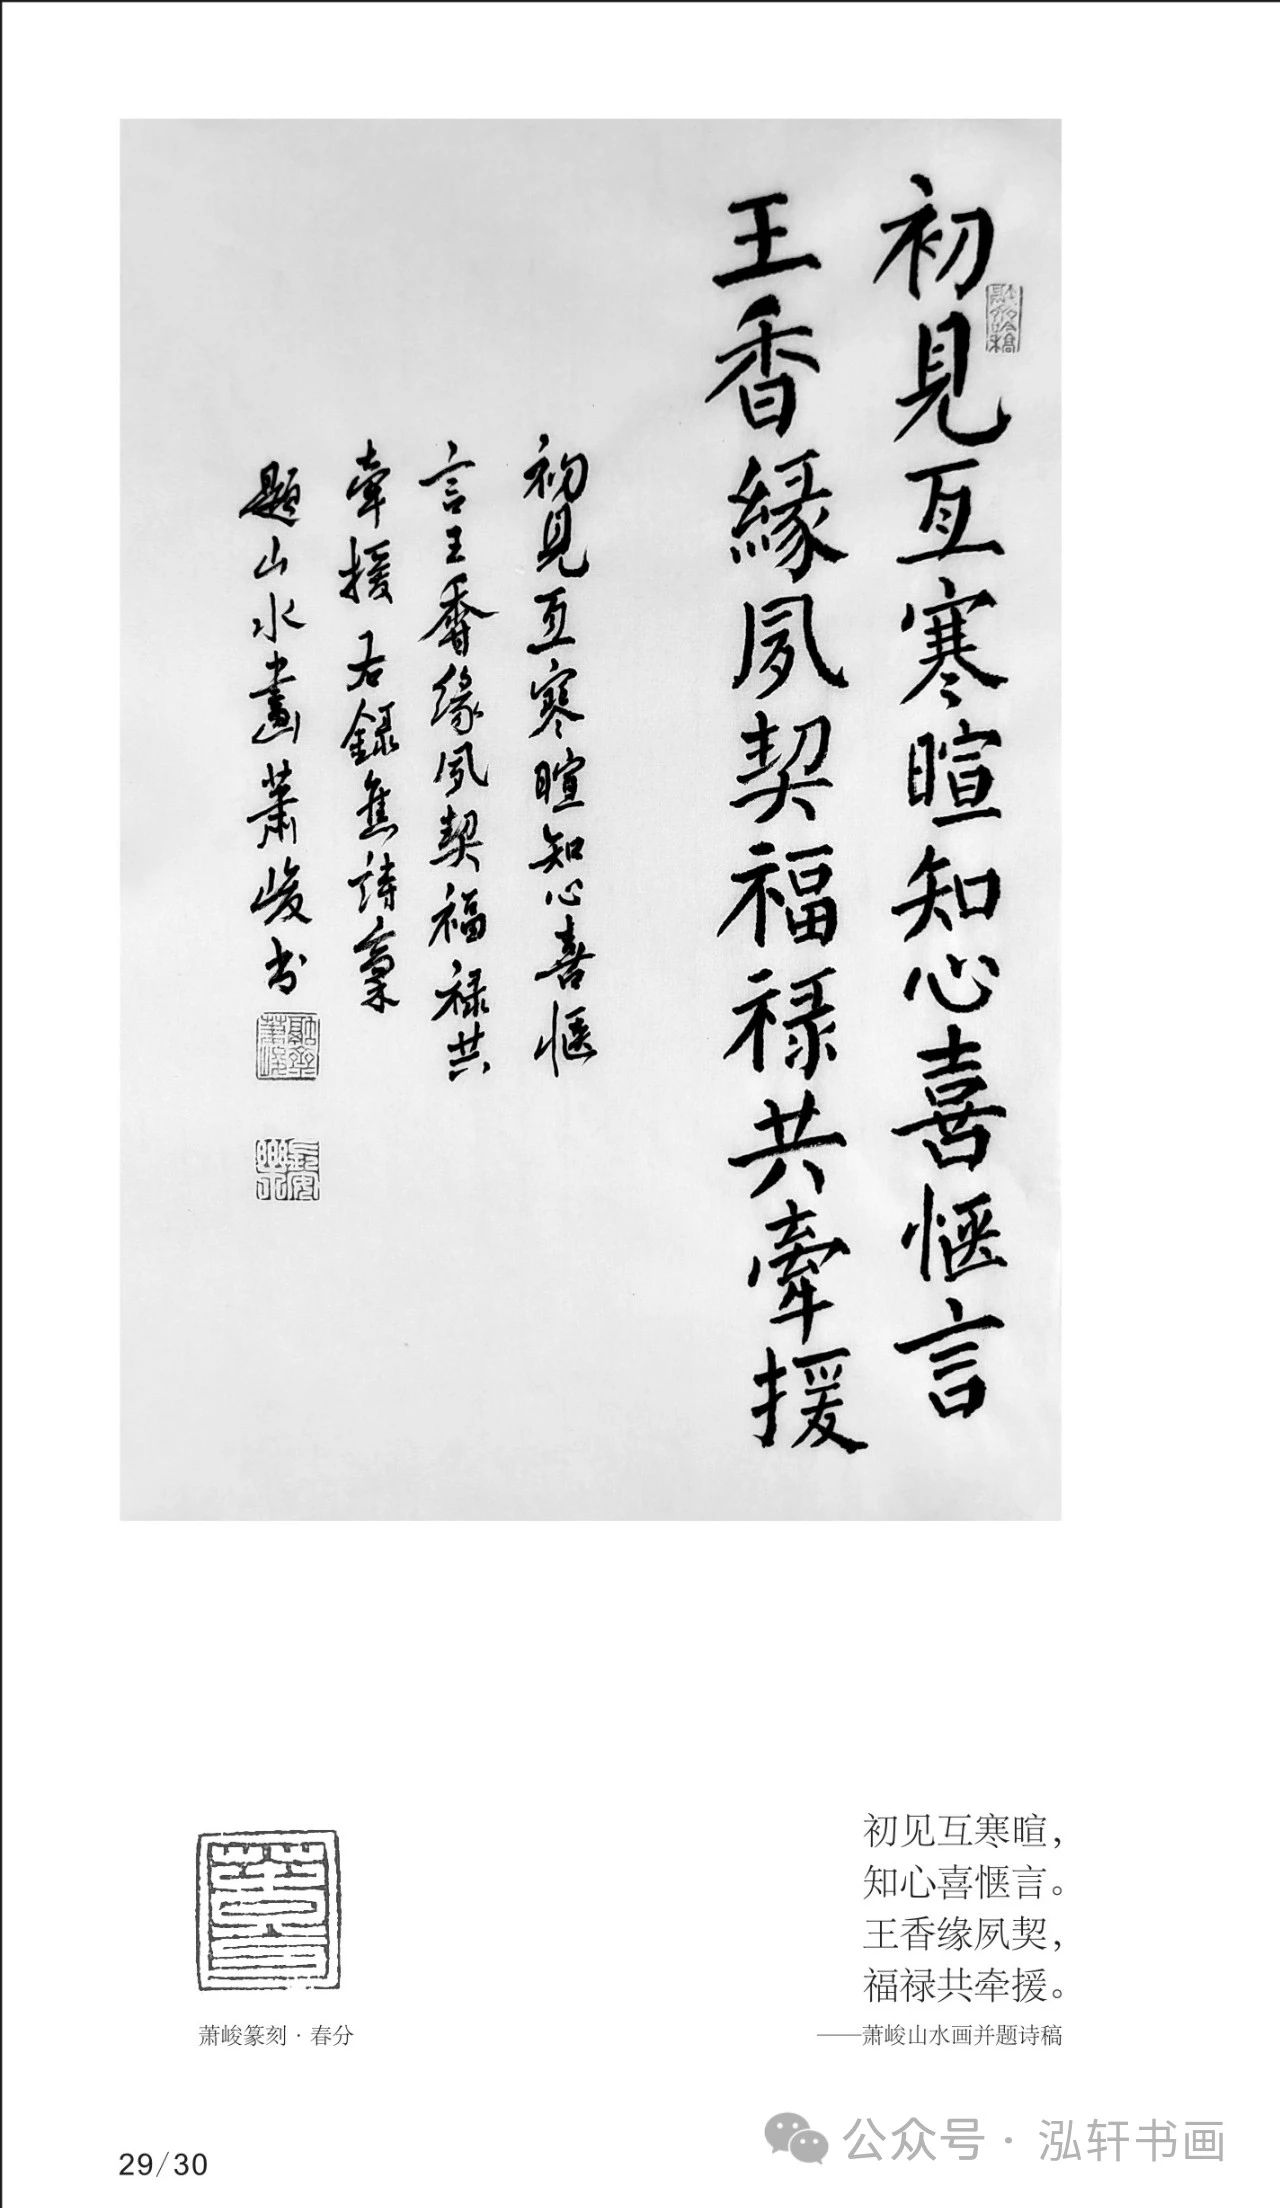 初見互寒暄知心喜惬言
王香緣夙契福禄共牽援
初見互寒暄知心喜惬
言王香緣夙契福禄共
牽援右錄舊詩稾
題山水畫蕭峻书
初见互寒暄，
知心喜惬言。
王香缘夙契，
福禄共牵援。
——萧峻山水画并题诗稿
萧峻篆刻·春分
29/30
公众号·泓轩书画